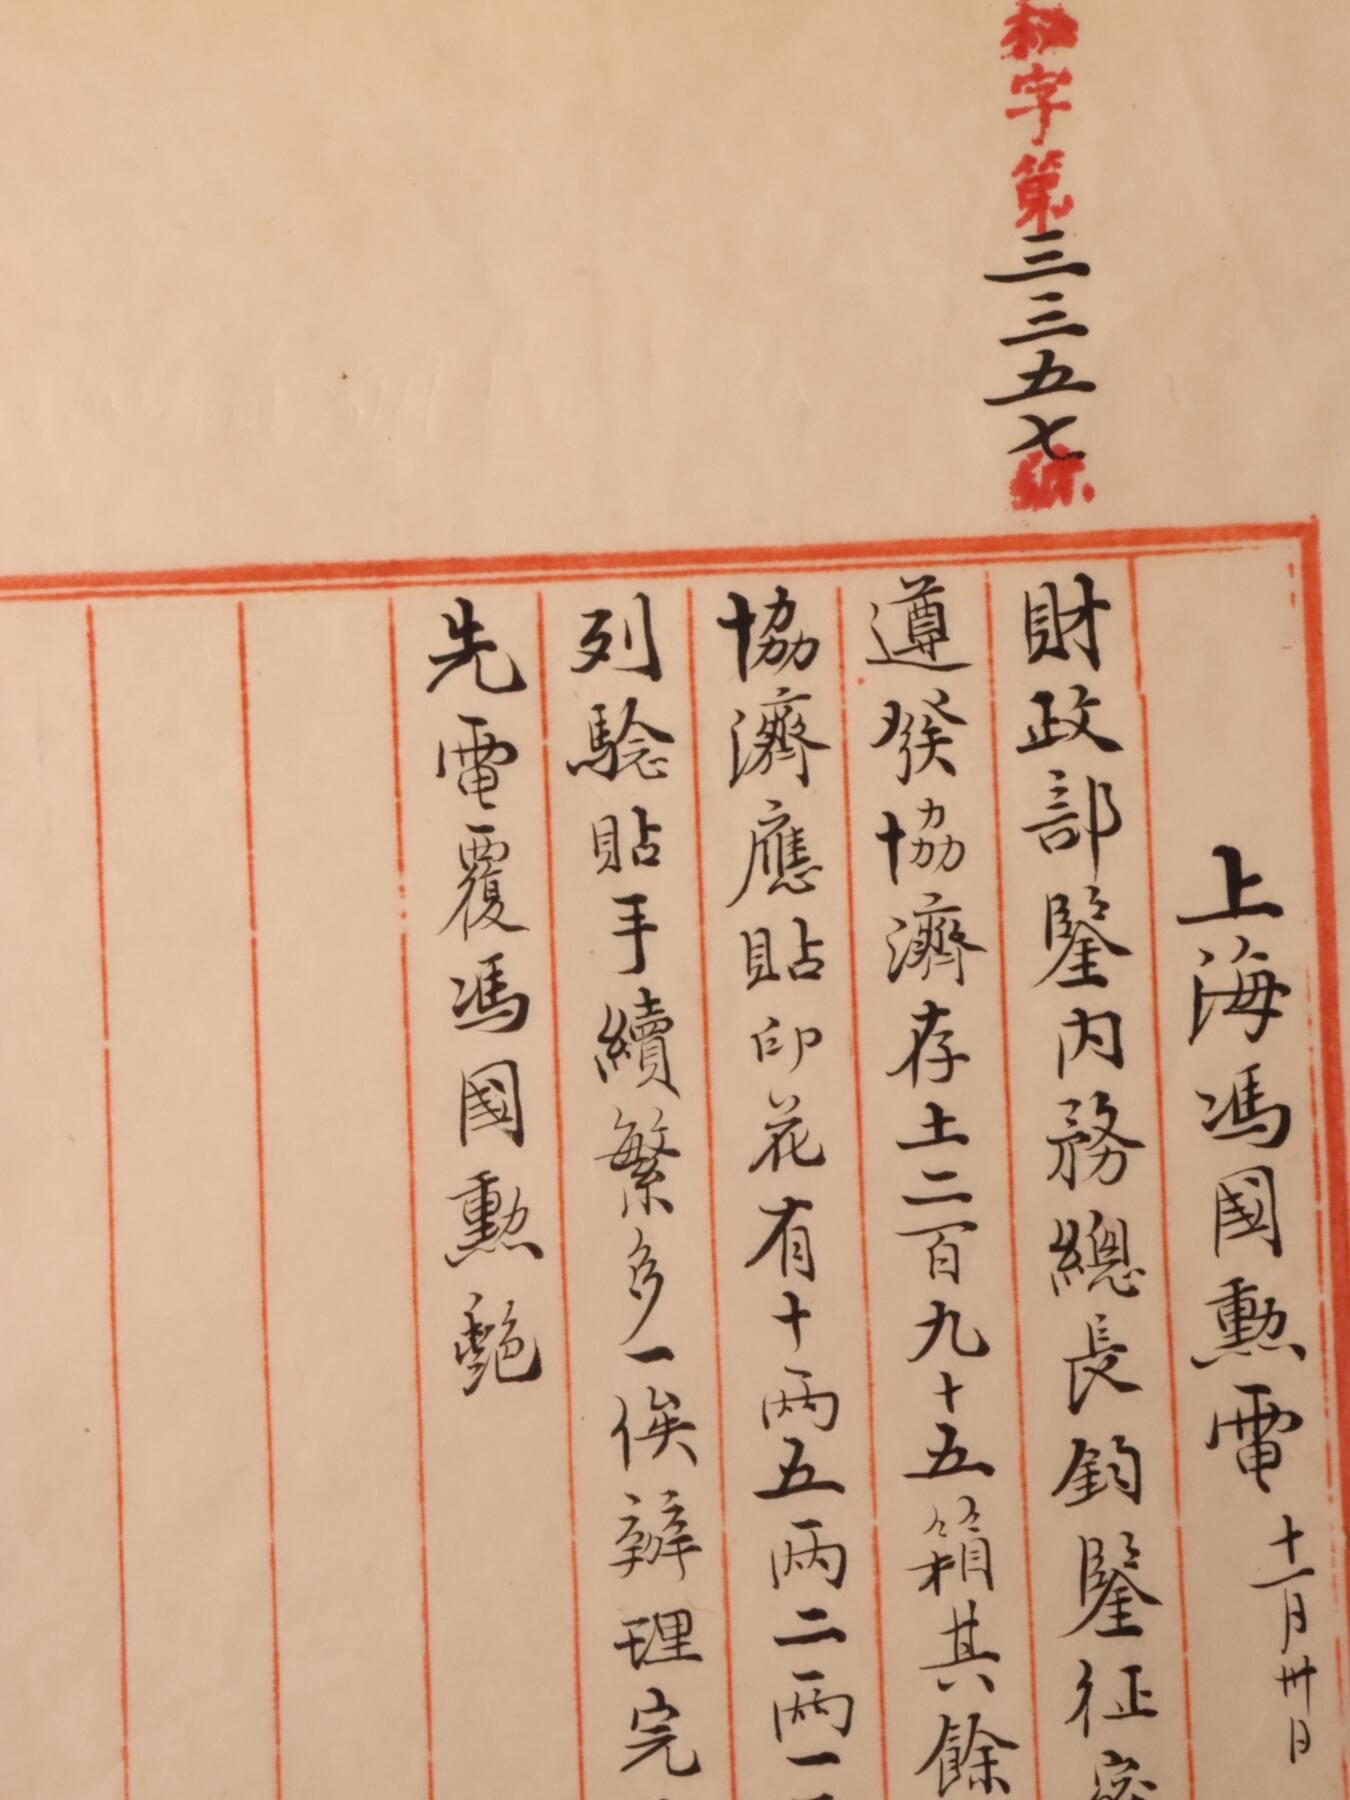 秘字第三三五七號
上海馮國勳電十一月卅日
財政部鑒内務總長鈞鑒征密
遵發協濟存土二百九十五箱其餘
協濟應貼印花有十兩五兩二兩一
列驗貼手續繁多一俟辦理完
先電覆馮國勳艷